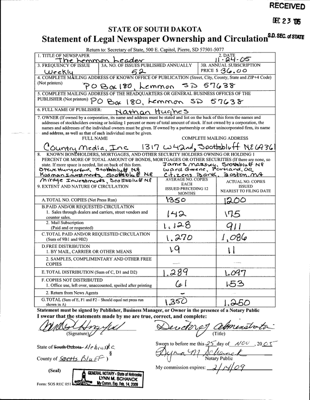 RECEIVED
DEC 23 '05
S.D. SEC. of STATE
STATE OF SOUTH DAKOTA
Statement of Legal Newspaper Ownership and Circulation
Return to: Secretary of State, 500 E. Capitol, Pierre, SD 57501-5077
1. TITLE OF NEWSPAPER
The Lemmon Leader
2. DATE
11-24-05
3. FREQUENCY OF ISSUE
Weekly
3A. NO. OF ISSUES PUBLISHED ANNUALLY
52
3B. ANNUAL SUBSCRIPTION
PRICE $ 36.00
4. COMPLETE MAILING ADDRESS OF KNOWN OFFICE OF PUBLICATION (Street, City, County, State and ZIP+4 Code)
(Not printers)
PO Box 180, Lemmon SD 57638
5. COMPLETE MAILING ADDRESS OF THE HEADQUARTERS OF GENERAL BUSINESS OFFICES OF THE
PUBLISHER (Not printer)
PO Box 180, Lemmon SD 57638
6. FULL NAME OF PUBLISHER:
Nathan Hughes
7. OWNER (If owned by a corporation, its name and address must be stated and listed on the back of this form the names and
addresses of stockholders owning or holding 1 percent or more of total amount of stock. If not owned by a corporation, the
names and addresses of the individual owners must be given. If owned by a partnership or other unincorporated firm, its name
and address, as well as that of each individual must be given.
FULL NAME
COMPLETE MAILING ADDRESS
Country Media, Inc
1317 W 42nd, Scottsbluff NE
8. KNOWN BONDHOLDERS, MORTGAGEES, AND OTHER SECURITY HOLDERS OWNING OR HOLDING 1
PERCENT OR MORE OF TOTAL AMOUNT OF BONDS, MORTGAGES OR OTHER SECURITIES
Scottsbluff NE
Portland, OR
E. EXTENT AND NATURE OF CIRCULATION
AVERAGE NO. COPIES
EACH
ISSUED PRECEDING 12
MONTHS
ACTUAL NO. COPIES
ISSUED
NEAREST TO FILING DATE
A. TOTAL NO. COPIES (Net Press Run)
1350
1200
B. PAID AND/OR REQUESTED CIRCULATION
1. Sales through dealers and carriers, street vendors and
counter sales.
142
175
2. Mail Subscription
(Paid and or requested)
1,128
911
C. TOTAL PAID AND/OR REQUESTED CIRCULATION
(Sum of 9B1 and 9B2)
1,270
1,086
D. FREE DISTRIBUTION
1. BY MAIL, CARRIER OR OTHER MEANS
19
11
2. SAMPLES, COMPLIMENTARY AND OTHER FREE
COPIES
E. TOTAL DISTRIBUTION (Sum of C, D1 and D2)
1,289
1,097
F. COPIES NOT DISTRIBUTED
1. Office use, left over, unaccounted, spoiled after printing
61
153
2. Return from News Agents
G. TOTAL (Sum of E, F1 and F2 - Should equal net press run
shown in A)
1,350
1,250
Statement must be signed by Publisher, Business Manager, or Owner in the presence of a Notary Public
I swear that the statements made by me are true, correct, and complete:
(Signature)
(Title)
State of South Dakota Nebraska
County of Scotts Bluff
Sworn to before me this 25 day of NOV, 2005
Notary Public
(Seal)
GENERAL NOTARY - State of Nebraska
LYNN M. SCHANCK
My Comm. Exp. Feb. 14, 2009
My commission expires: 2/14/09
Form: SOS REC 051